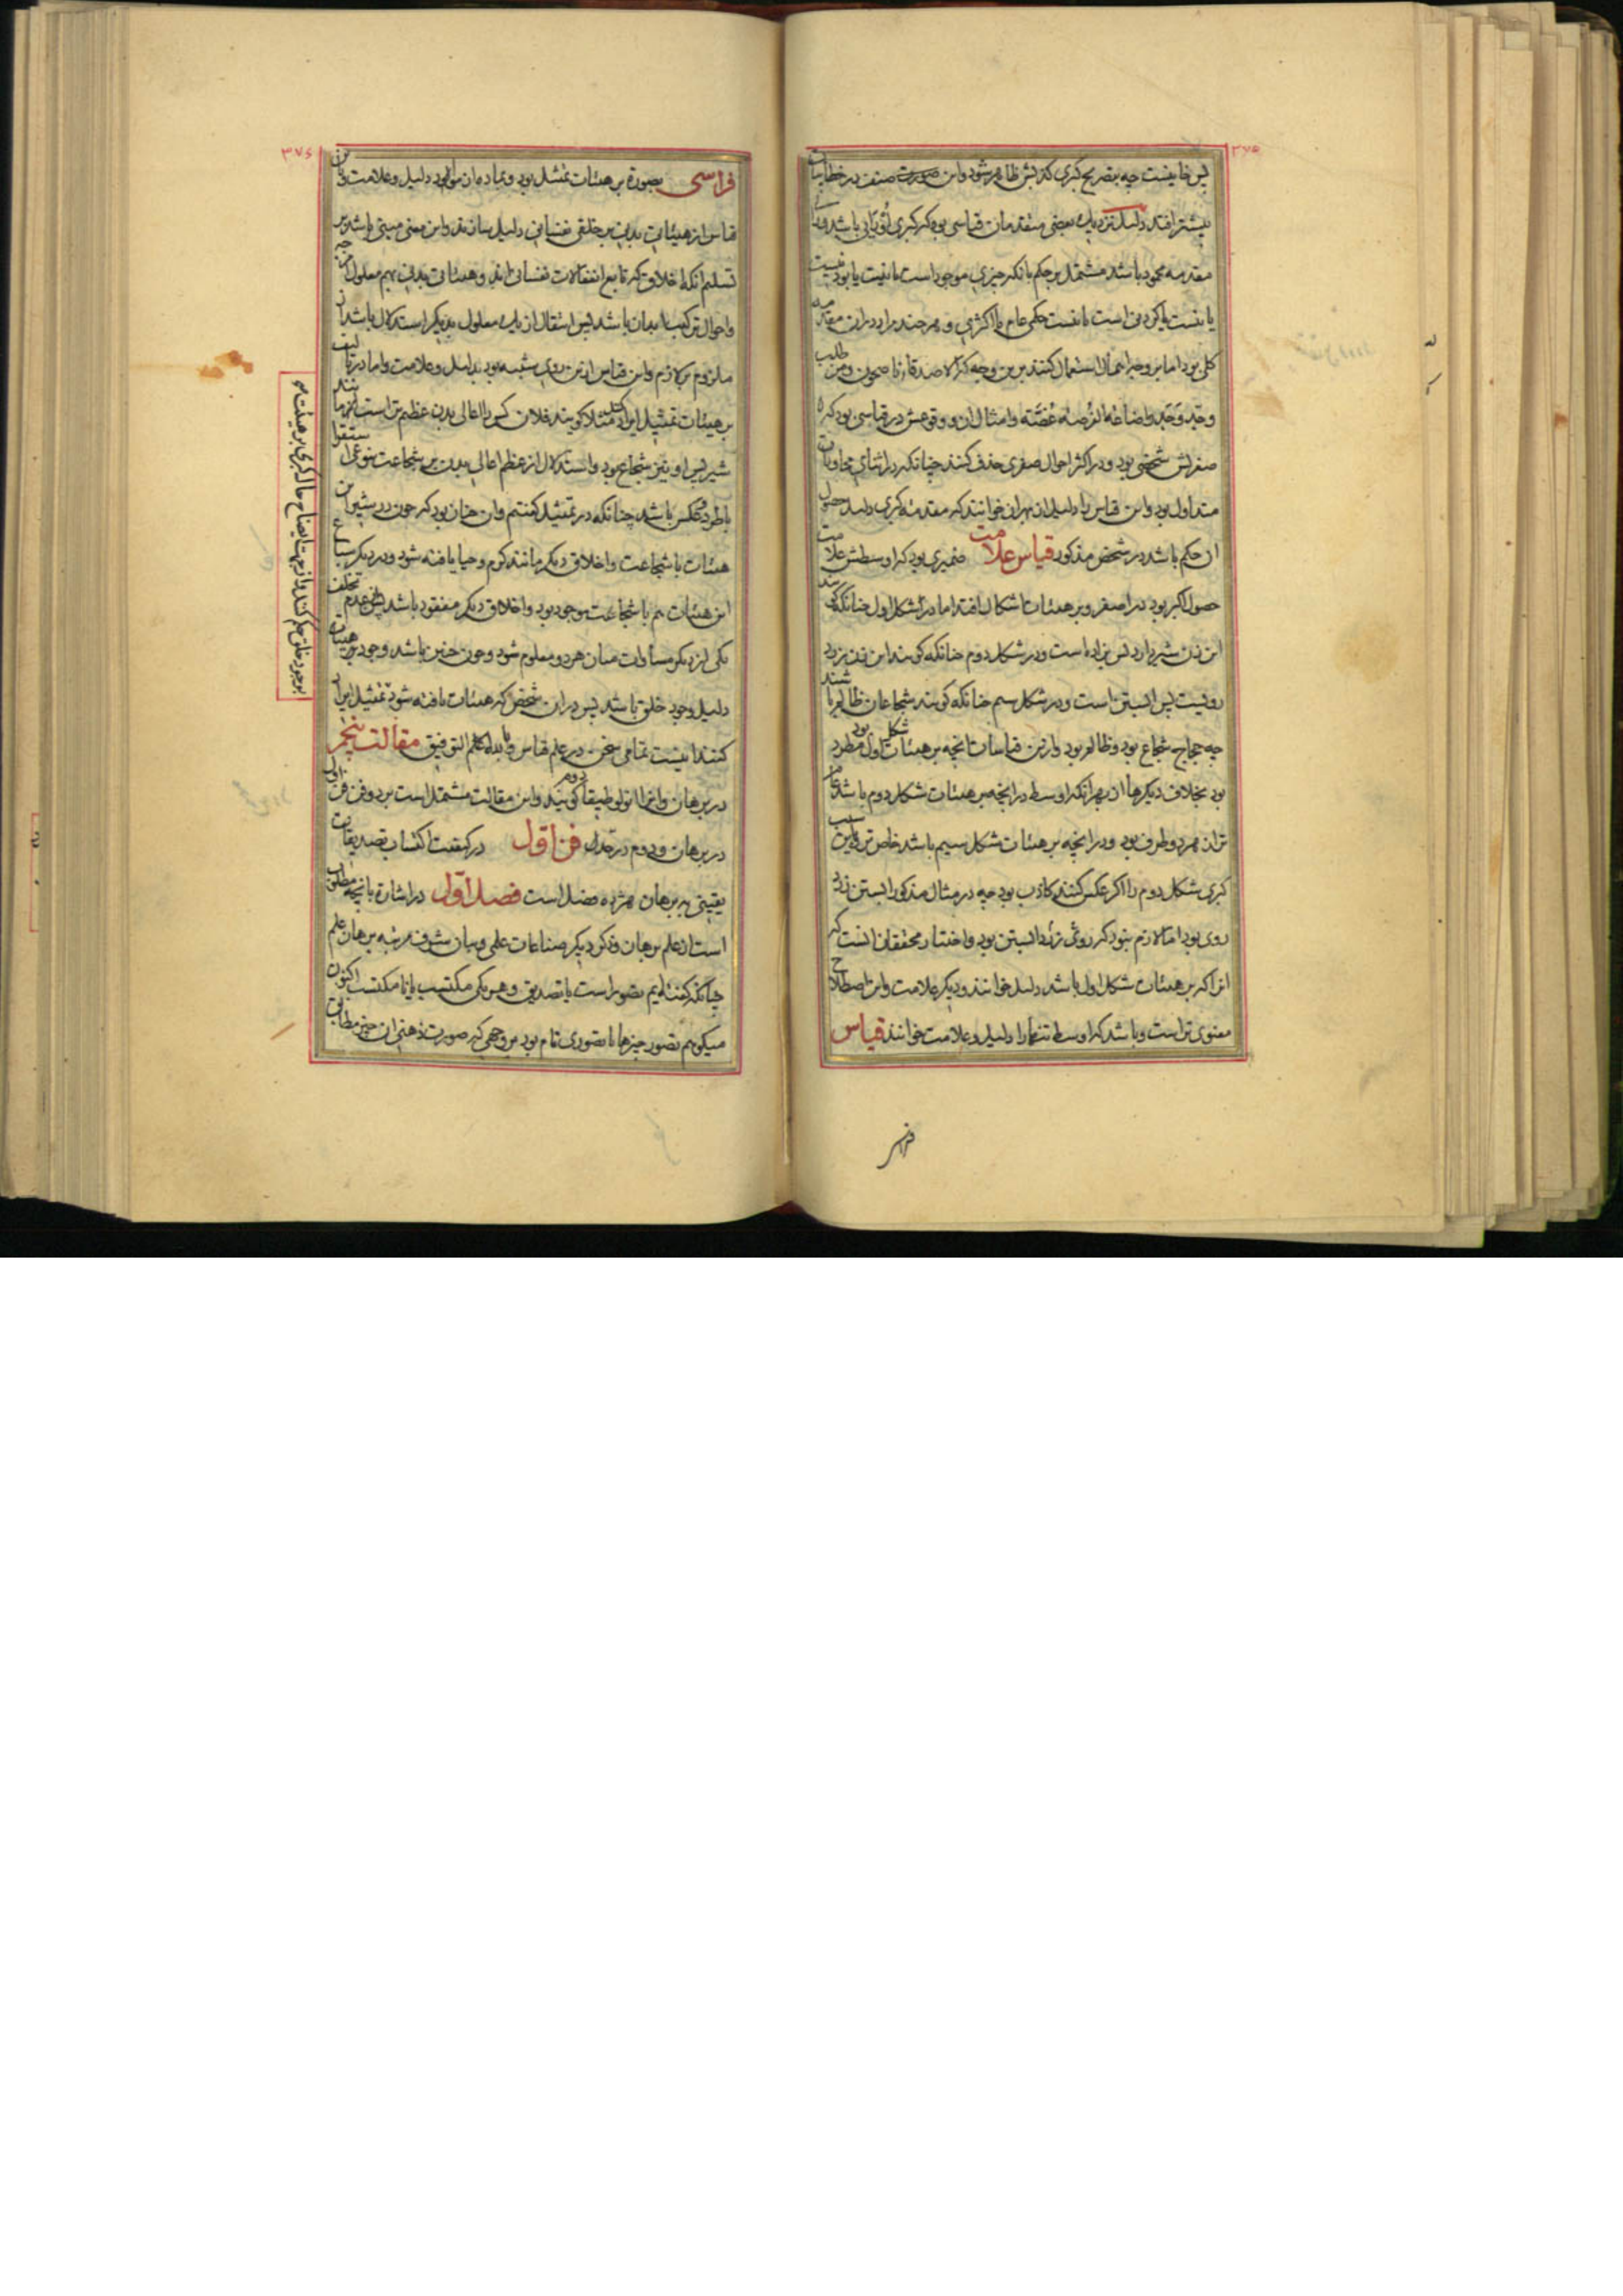 ۳۷۵
پس خا نیست چه بتصریح کبری کذبش ظاهر شود و این صورت صنف در خطابیات
بیشتر افتد دلیل نزدیک بعضی متقدمان قیاسی بود که کبری او رایی باشد و رای
مقدمه محمود باشد مشتمل بر حکم بآنکه چیزی موجود است یا نیست یا بودنیست
یا نیست یا کردنی است یا نیست حکمی عام یا اکثری و هر چند مراد در ان مقدمه
کلی بود اما بر وجه اهمال استعمال کنند برین وجه که الاصدقاء ناصحون و من طلب
وجد وجد واضاعة الفرصة غصة و امثال ان و وقوعش در قیاسی بود که
صغراش شخصی بود و در اکثر احوال صغری حذف کنند چنانکه در اثنای محاورات
متداول بود و این قیاس را دلیل از بهر ان خوانند که مقدمه کبری دلیل حصول
ان حکم باشد در شخص مذکور قیاس علامت ضمیری بود که اوسطش علامت
حصول اکبر بود در اصغر و بر هیئات اشکال افتد اما در شکل اول چنانکه گویند
این زن شیر دارد پس بزاده است و در شکل دوم چنانکه گویند این زن زرد
رویست پس ابستن است و در شکل سیم چنانکه گویند شجاعان ظالم باشند
چه حجاج شجاع بود و ظالم بود و ازین قیاسات انچه بر هیئات شکل اول بود مطرد
بود بخلاف دیگرها از بهر آنکه اوسط در انچه بر هیئات شکل دوم باشد عام
تر از هر دو طرف بود و در انچه بر هیئات شکل سیم باشد خاص تر و باین سبب
کبری شکل دوم را اگر عکس کنند کاذب بود چه در مثال مذکور ابستن زرد
روی بود اما لازم نبود که زرد روی ابستن بود و اختیار محققان انست که
انرا که بر هیئات شکل اول باشد دلیل خوانند و دیگر علامت و این اصطلاح
معنوی تر است و باشد که اوسط تنها را دلیل و علامت خوانند قیاس
۳۷۶
فراسی بصورة بر هیئات تمثیل بود و بماده مانند بود دلیل و علامت و این
قیاس از هیئاتی بدنی بر خلقی نفسانی دلیل سازند و این معنی مبنی باشد بر
تسلیم آنکه اخلاق که تابع انفعالات نفسانی اند و هیئاتی بدنی بهم معلول مزجه
و احوال ترکیب ابدان باشد پس انتقال از یک معلول بدیگر استدلال باشد از
ملزوم بر لازم و این قیاس ازین روی شبیه بود بدلیل و علامت و اما در تالیف
بر هیئات تمثیل ایراد کنند مثلا گویند فلان کس را اعالی بدن عظیم تر است مانند
شیر پس او نیز شجاع بود و استدلال از عظم اعالی بدن بر شجاعت بنوعی استقرا
با طرد و عکس باشد چنانکه در تمثیل گفتیم و ان چنان بود که چون در شیر این
هیئات با شجاعت و اخلاق دیگر مانند کرم و حیا یافته شود و در دیگر سباع
این هیئات هم با شجاعت موجود بود و اخلاق دیگر مفقود باشد پس عدم تخلف
یکی از دیگر مساوات میان هر دو معلوم شود و چون چنین باشد وجود هیئات
دلیل وجود خلق باشد پس در ان شخص که هیئات یافته شود تمثیل ایراد
کنند اینست تمامی سخن در علم قیاس و بالله التوفیق مقالت پنجم
در برهان و انرا انولوطیقا دوم گویند و این مقالت مشتمل است بر دو فن فن اول
در برهان و دوم در جدل فن اول در کیفیت اکتساب تصدیقات
یقینی ببرهان هژده فصل است فصل اول در اشارة بآنچه مطلوب
است از علم برهان و ذکر دیگر صناعات علمی و بیان شرف مرتبه برهان علم
چنانکه گفته ایم تصور است یا تصدیق و هر یکی مکتسب یا نا مکتسب اکنون
میگوئیم تصور چیزها یا تصوری تام بود بر وجهی که صورت ذهنی ان چیز مطابق